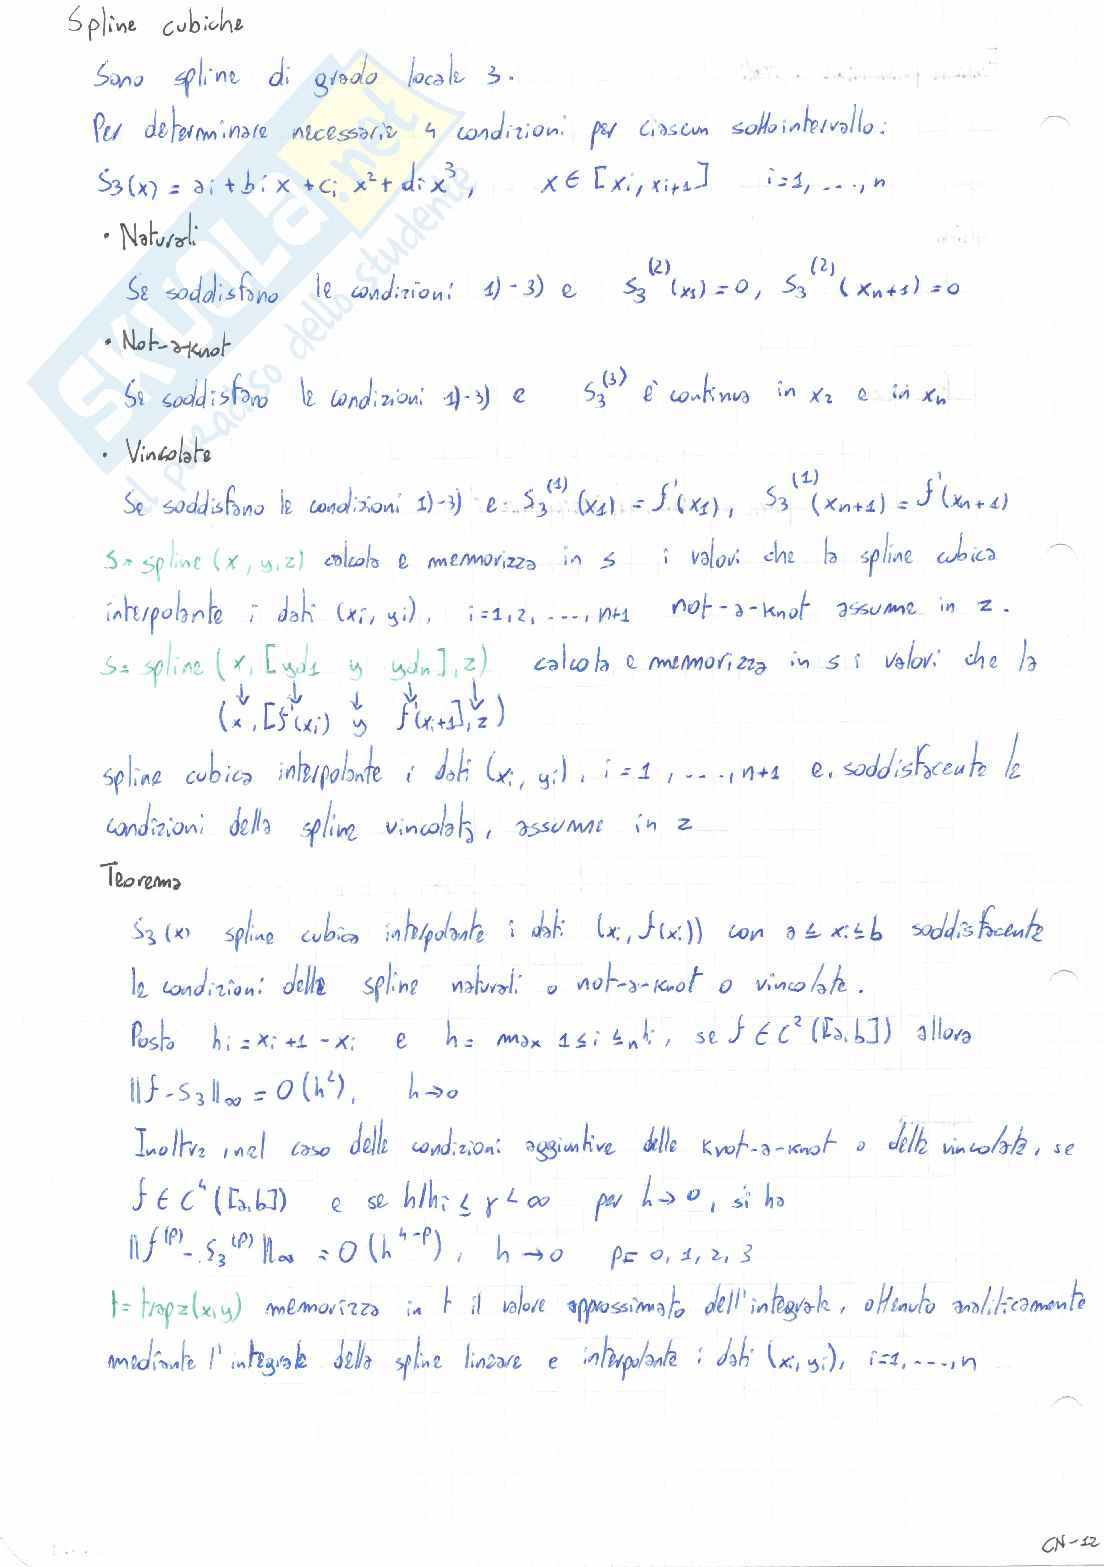 Spline cubiche
Sono spline di grado locale 3.
Per determinare necessarie 4 condizioni per ciascun sottointervallo:
S₃(x) = ai + bi x + ci x² + di x³, x ∈ [xi, xi+1] i=1, ..., n
• Naturali
Se soddisfano le condizioni 1) - 3) e S₃⁽²⁾(x₁) = 0, S₃⁽²⁾(xn+1) = 0
• Not-a-knot
Se soddisfano le condizioni 1)-3) e S₃⁽³⁾ è continua in x₂ e in xn
• Vincolate
Se soddisfano le condizioni 1)-3) e S₃⁽¹⁾(x₁) = f'(x₁), S₃⁽¹⁾(xn+1) = f'(xn+1)
s = spline (x, y, z) calcola e memorizza in s i valori che la spline cubica
interpolante i dati (xi, yi), i=1,2, ..., n+1 not-a-knot assume in z.
s = spline (x, [yd1 y ydn], z) calcola e memorizza in s i valori che la
↓ ↓ ↓ ↓ ↓
(x, [f'(xi) y f'(xi+1], z)
spline cubica interpolante i dati (xi, yi), i = 1, ..., n+1 e, soddisfacente le
condizioni della spline vincolata, assume in z
Teorema
S₃(x) spline cubica interpolante i dati (xi, f(xi)) con a ≤ xi ≤ b soddisfacente
le condizioni delle spline naturali o not-a-knot o vincolate.
Posto hi = xi+1 - xi e h = max 1≤i≤n hi, se f ∈ C²([a,b]) allora
||f - S₃||∞ = O(h²), h→0
Inoltre, nel caso delle condizioni aggiuntive delle knot-a-knot o delle vincolate, se
f ∈ C⁴([a,b]) e se h/hi ≤ γ < ∞ per h→0, si ha
||f⁽ᵖ⁾ - S₃⁽ᵖ⁾||∞ = O(h⁴⁻ᵖ), h→0 p = 0, 1, 2, 3
t = trapz(x,y) memorizza in t il valore approssimato dell'integrale, ottenuto analiticamente
mediante l'integrale della spline lineare e interpolante i dati (xi, yi), i=1, ..., n
CN-12
SKUOLA.net
il paradiso dello studente